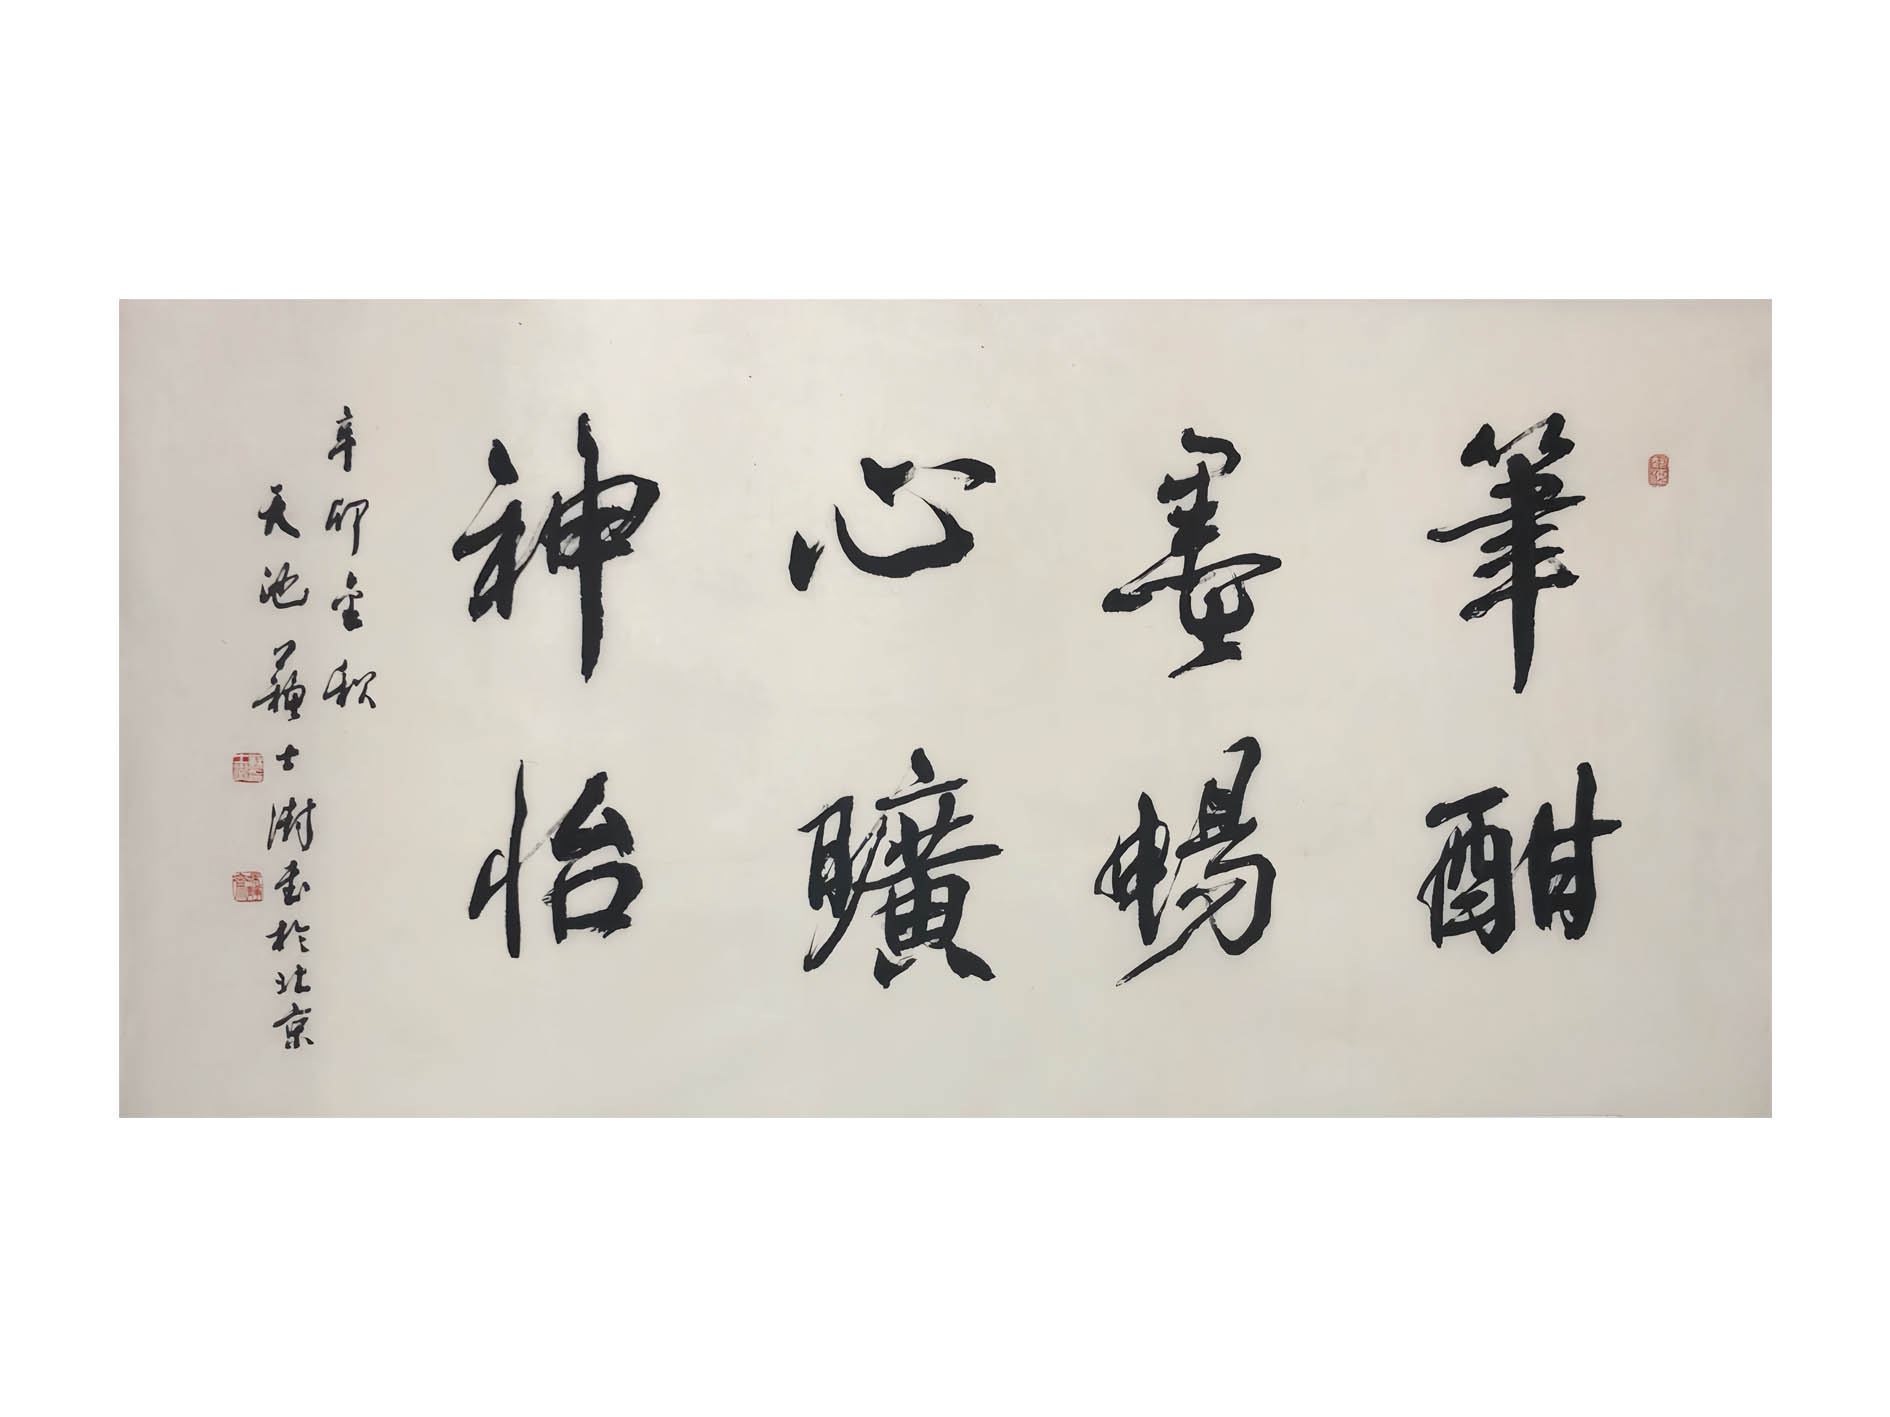 筆酣
墨暢
心曠
神怡
辛卯金秋
天池蘇士澍書於北京